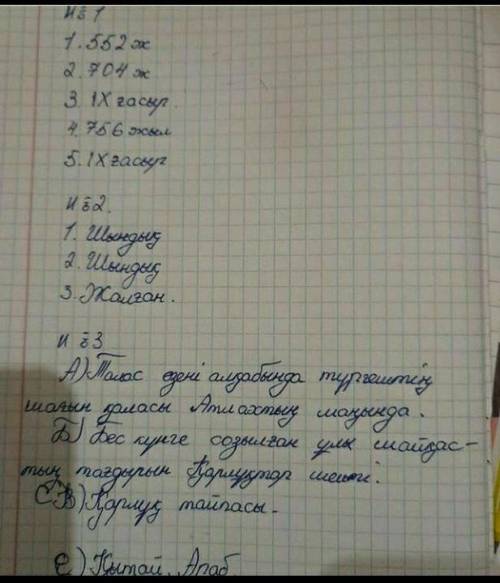 №1
1. 552 ж
2. 704 ж
3. IX ғасыр.
4. 756 жыл
5. IX ғасыр
№2.
1. Шындық
2. Шындық
3. Жалған.
№3
А) Талас өзені алқабында түргештің
шағын қаласы Атлахтың маңында.
Б) Бес күнге созылған ұлы шайқас-
тың тағдырын Қарлұқтар шешті.
С В) Қарлұқ тайпасы.
Е) Қытай, Араб